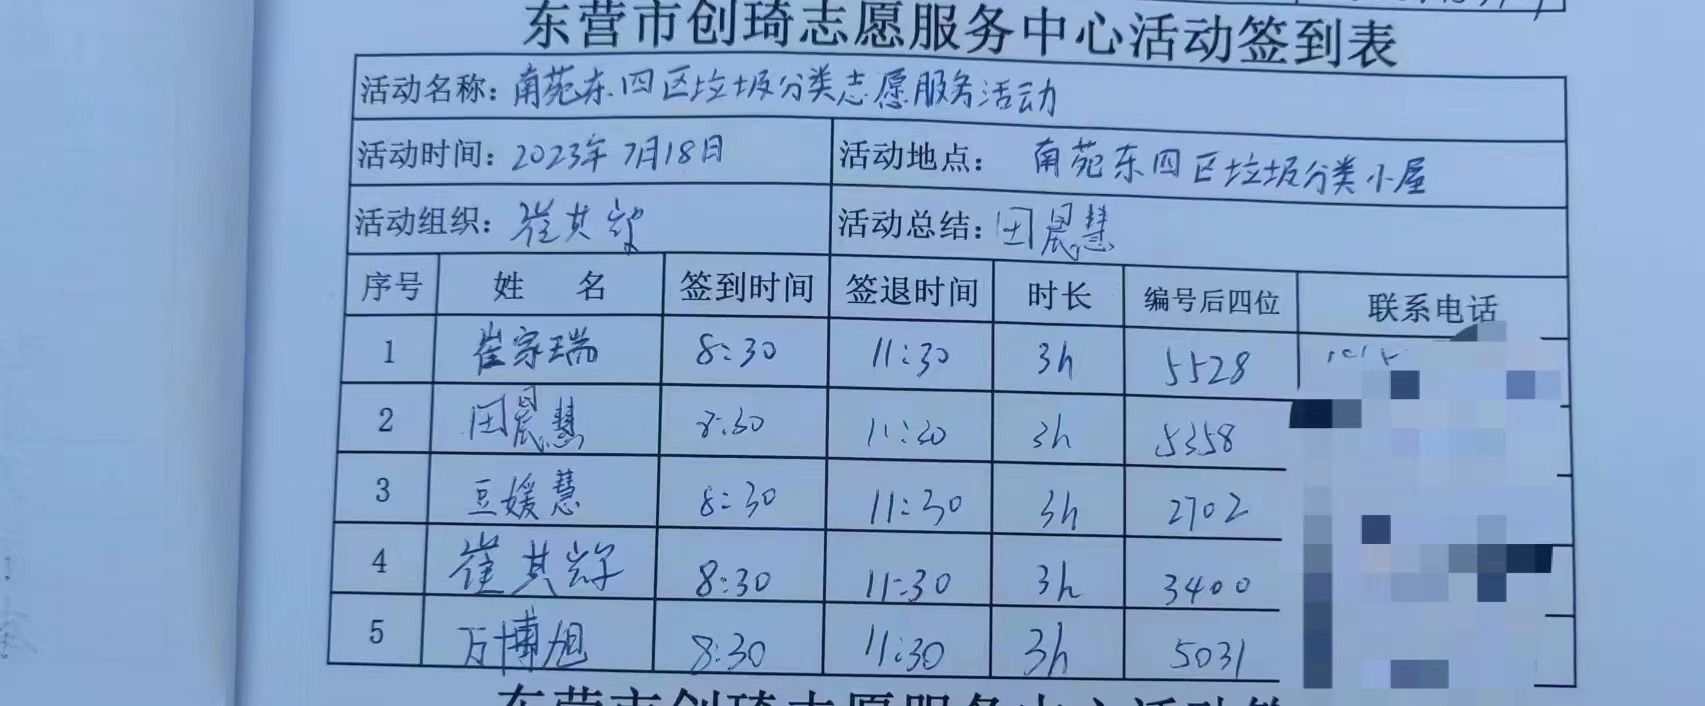 东营市创琦志愿服务中心活动签到表
活动名称：南苑东四区垃圾分类志愿服务活动
活动时间：2023年7月18日 活动地点：南苑东四区垃圾分类小屋
活动组织：崔其 活动总结：田晨慧
序号 姓名 签到时间 签退时间 时长 编号后四位 联系电话
1 崔家瑞 8:30 11:30 3h 5528
2 田晨慧 8:30 11:30 3h 5358
3 豆媛慧 8:30 11:30 3h 2702
4 崔其 8:30 11:30 3h 3400
5 万博旭 8:30 11:30 3h 5031
东营市创琦志愿服务中心活动签